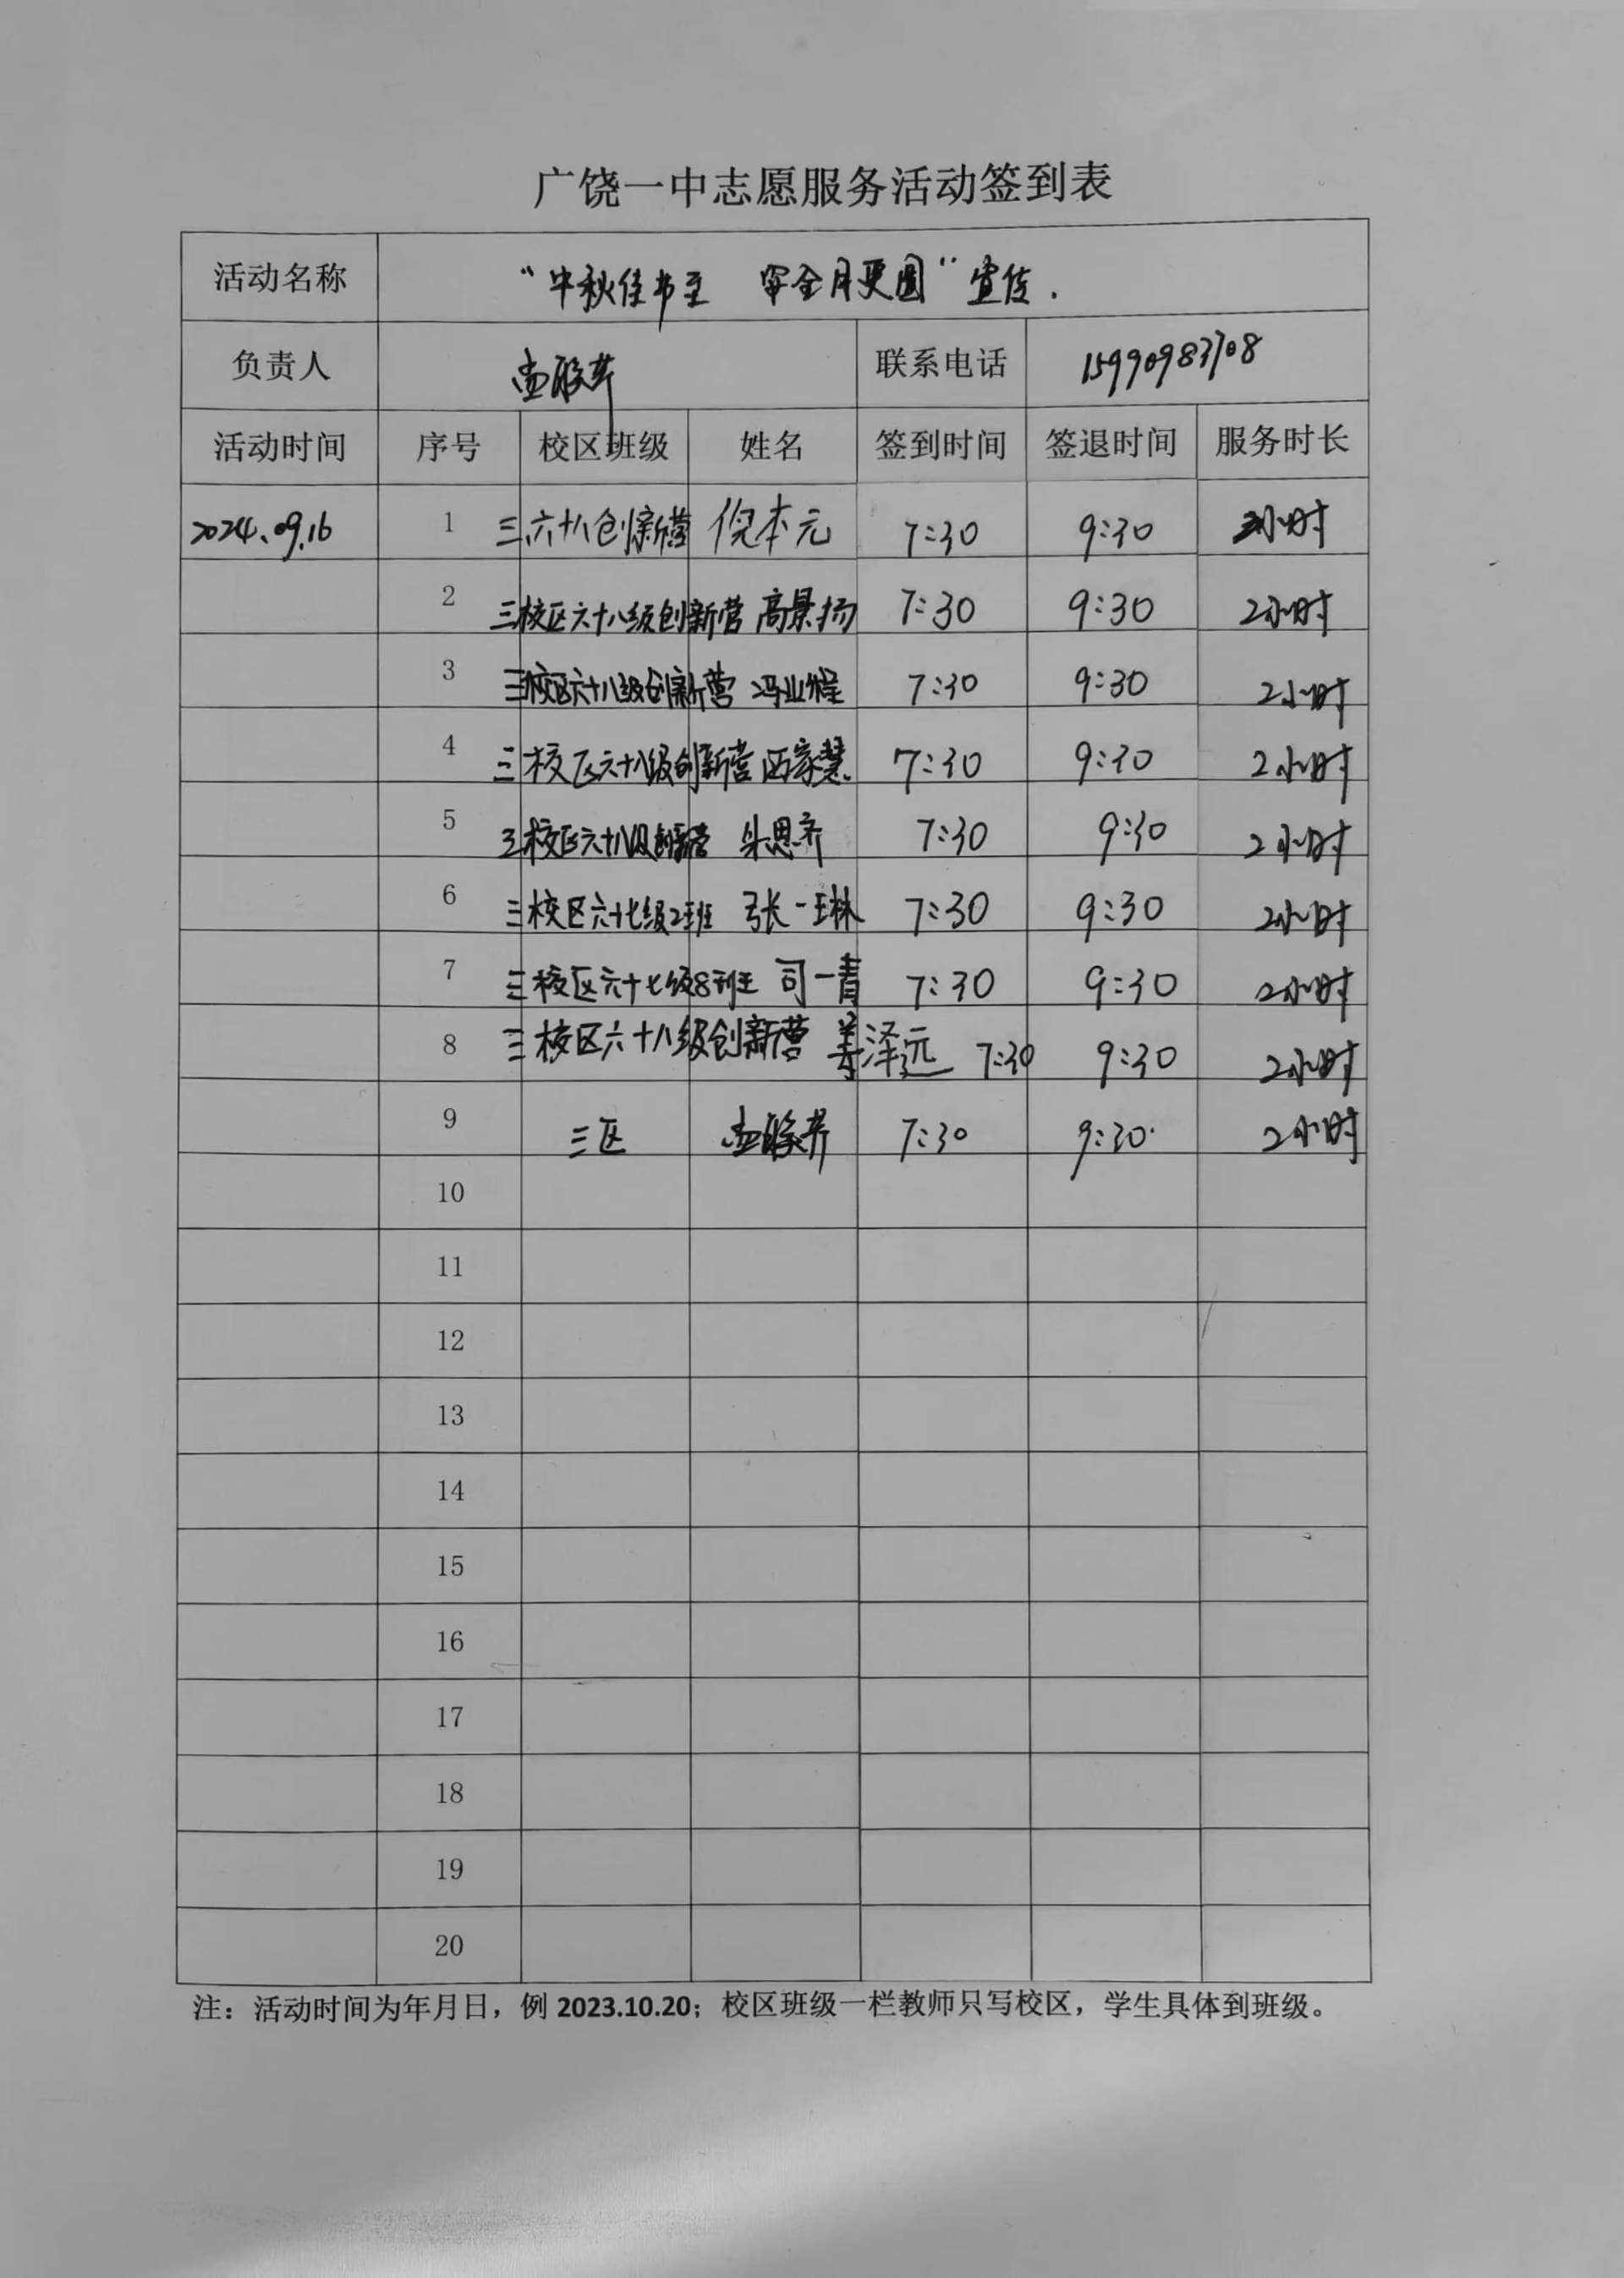 广饶一中志愿服务活动签到表
活动名称 “中秋佳节至 安全月更圆”宣传.
负责人 联系电话 15990983708
活动时间 序号 校区班级 姓名 签到时间 签退时间 服务时长
2024.09.16 1 三.六十八创新营 倪本元 7:30 9:30 2小时
2 三校区六十八级创新营 高景扬 7:30 9:30 2小时
3 三校区六十八级创新营 冯业程 7:30 9:30 2小时
4 三校区六十八级创新营 西家慧 7:30 9:30 2小时
5 三校区六十八级创新营 朱思齐 7:30 9:30 2小时
6 三校区六十七级2班 张一琳 7:30 9:30 2小时
7 三校区六十七级8班 司一青 7:30 9:30 2小时
8 三校区六十八级创新营 姜泽远 7:30 9:30 2小时
9 三区 7:30 9:30 2小时
10
11
12
13
14
15
16
17
18
19
20
注：活动时间为年月日，例 2023.10.20；校区班级一栏教师只写校区，学生具体到班级。